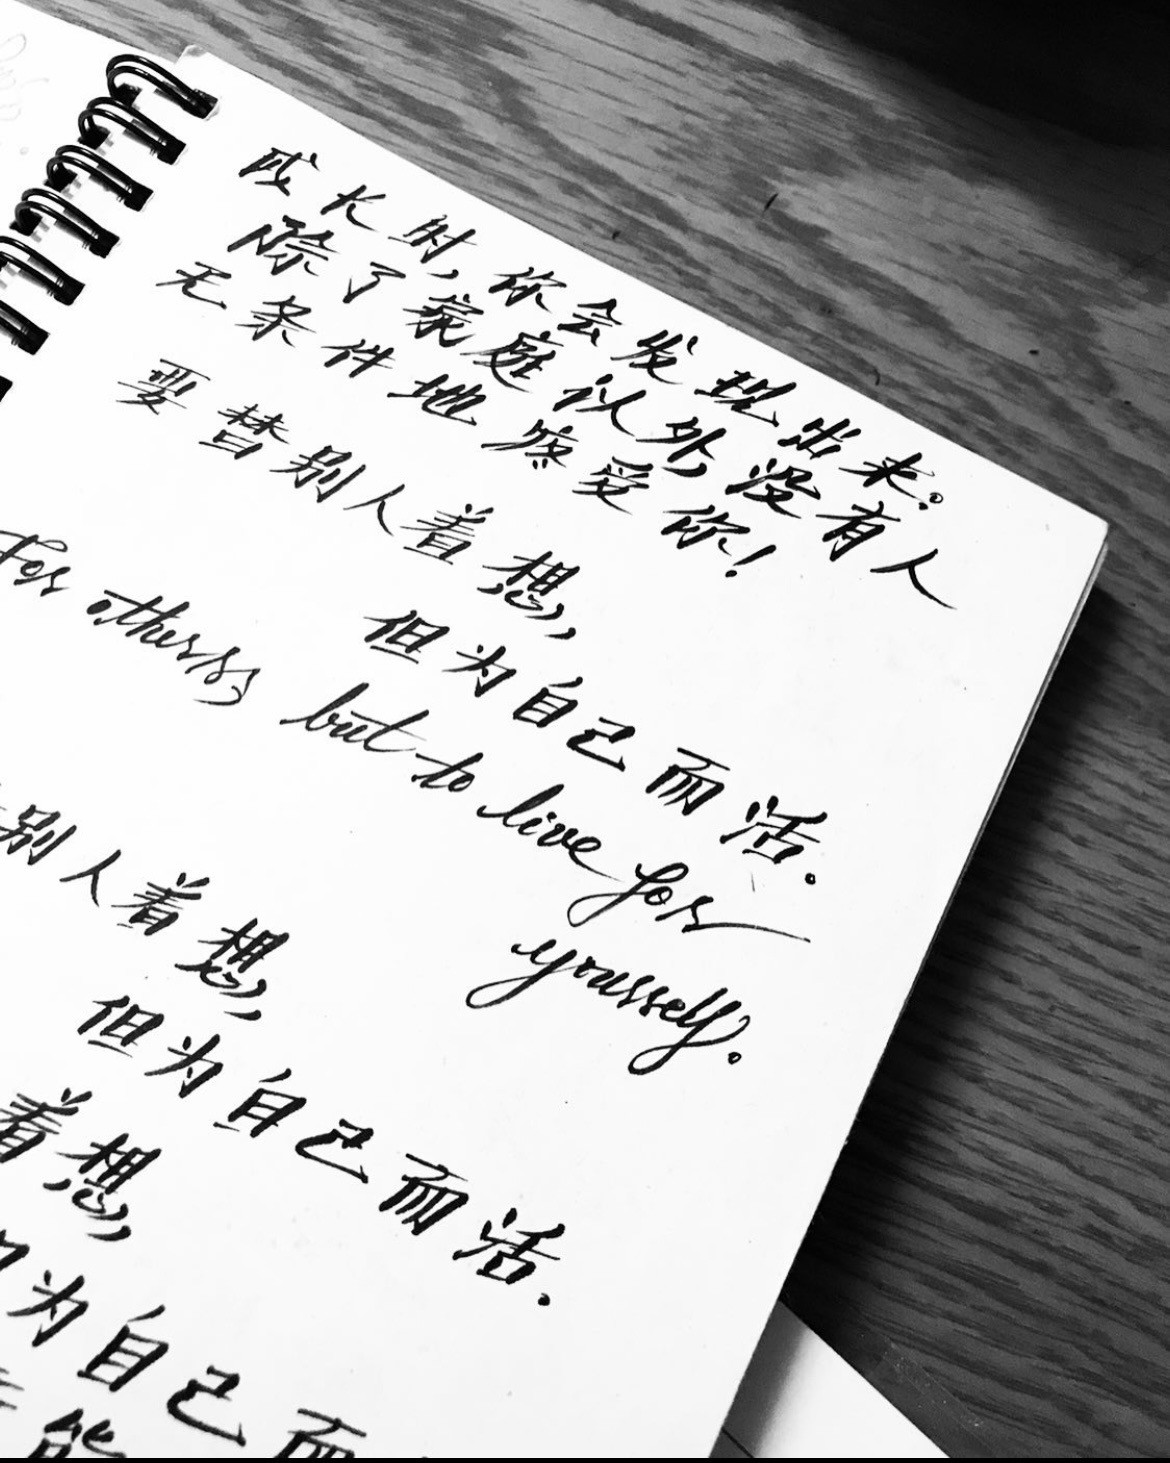 成长时,你会发现出来。
除了家庭以外,没有人
无条件地疼爱你!
要替别人着想,
但为自己而活.
for others but to live for
yourself.
别人着想,
但为自己而活.
着想,
为自己而
能